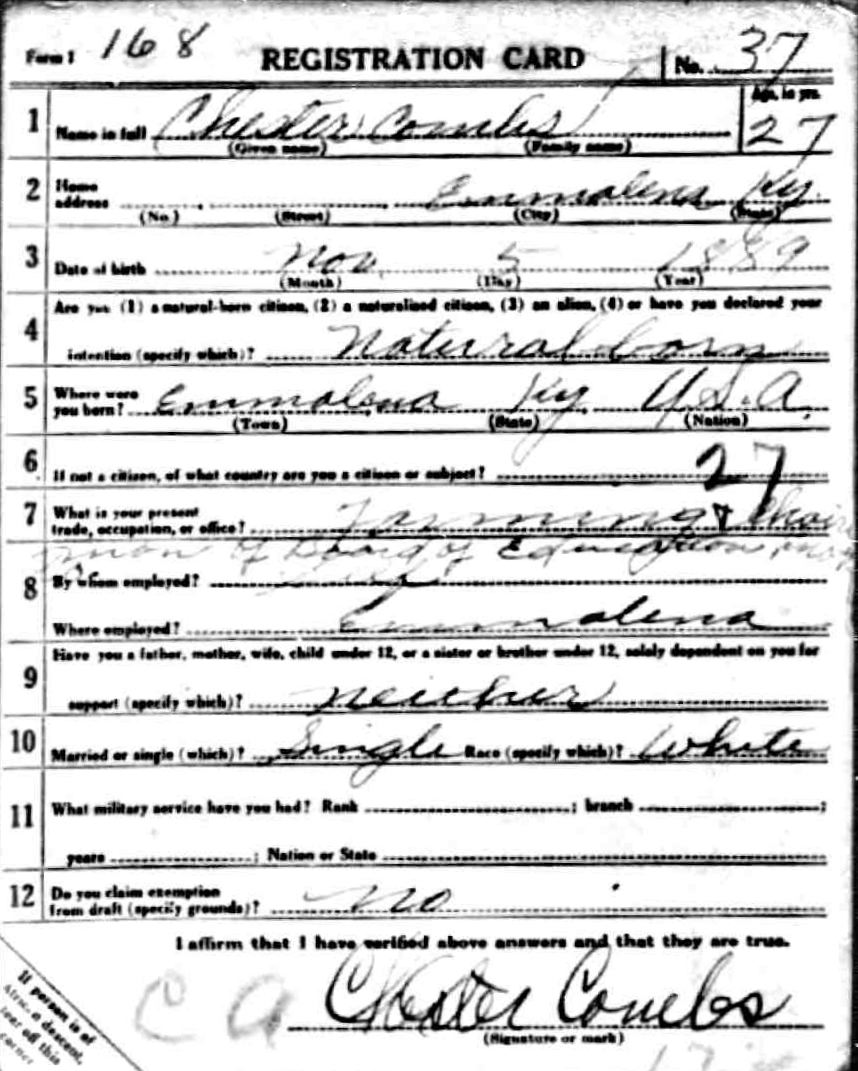 Form 1 168 REGISTRATION CARD No. 37
1 Name in full Chester Combs Age, in yrs. 27
(Given name) (Family name)
2 Home address Emmalena Ky.
(No.) (Street) (City) (State)
3 Date of birth Nov. 5 1889
(Month) (Day) (Year)
4 Are you (1) a natural-born citizen, (2) a naturalized citizen, (3) an alien, (4) or have you declared your
intention (specify which)? Natural born
5 Where were you born? Emmalena Ky U.S.A.
(Town) (State) (Nation)
6 If not a citizen, of what country are you a citizen or subject? 27
7 What is your present trade, occupation, or office? Farming & Chair
man of Board of Education
8 By whom employed?
Where employed? Emmalena
9 Have you a father, mother, wife, child under 12, or a sister or brother under 12, solely dependent on you for
support (specify which)? neither
10 Married or single (which)? Single Race (specify which)? White
11 What military service have you had? Rank ; branch ;
years ; Nation or State
12 Do you claim exemption from draft (specify grounds)? No
I affirm that I have verified above answers and that they are true.
C A Chester Combs
(Signature or mark)
If person is of
African descent,
tear off this
corner